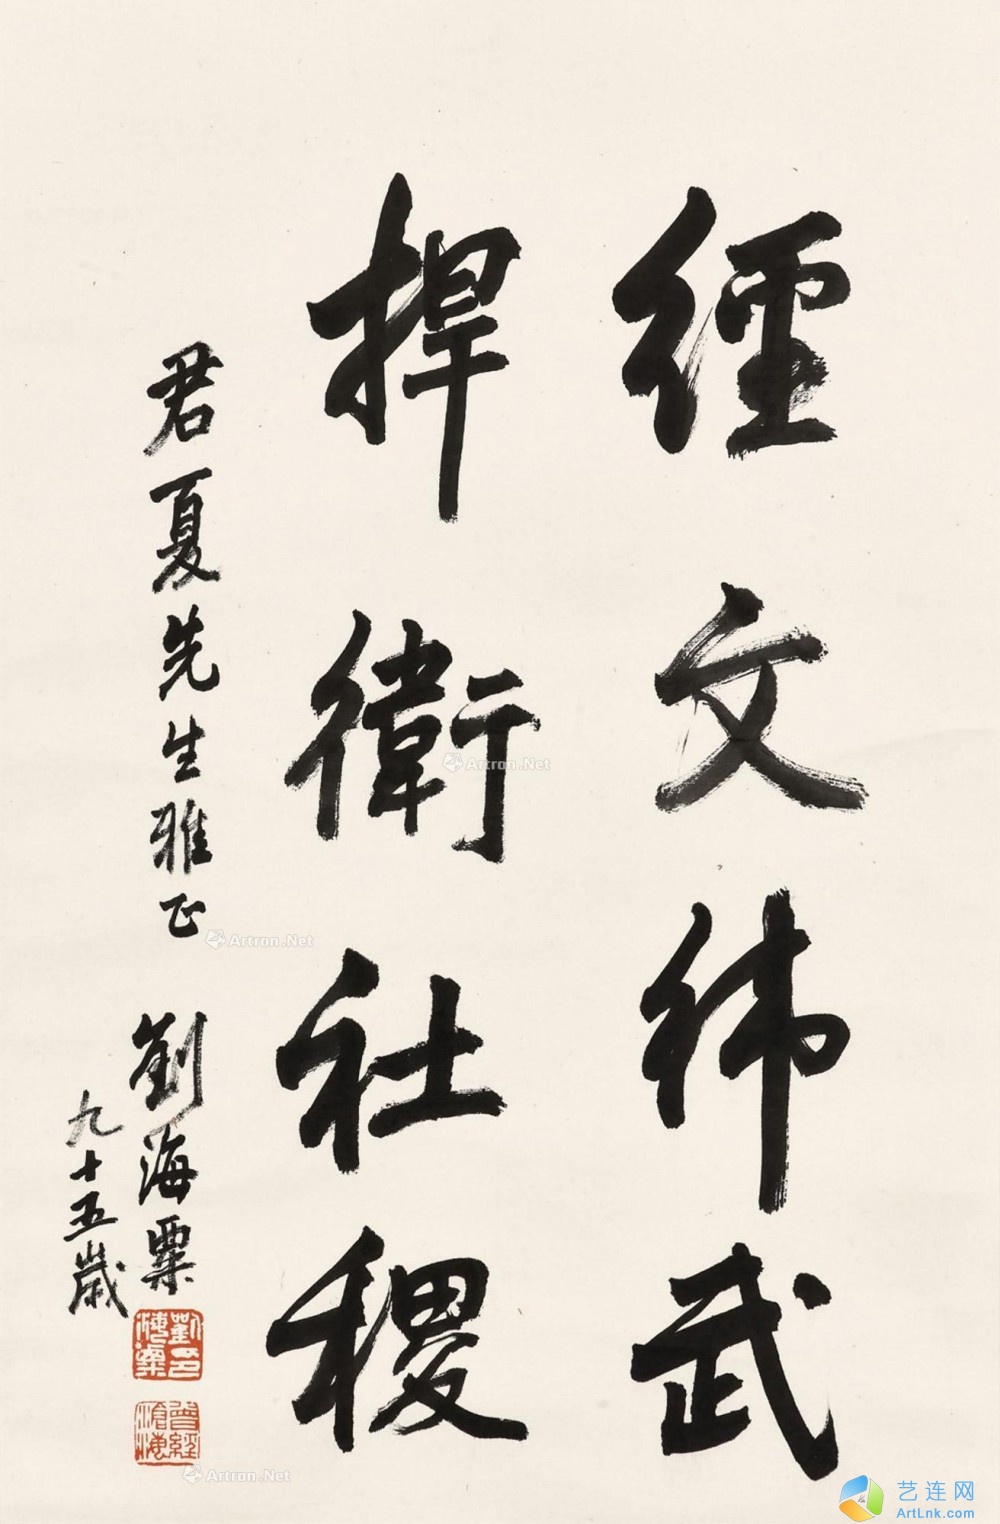 經文緯武
捍衛社稷
君夏先生雅正 劉海粟
九十五歲
劉海粟印
曾經滄海
Artron.Net
Artron.Net
Artron.Net
艺连网
ArtLnk.com